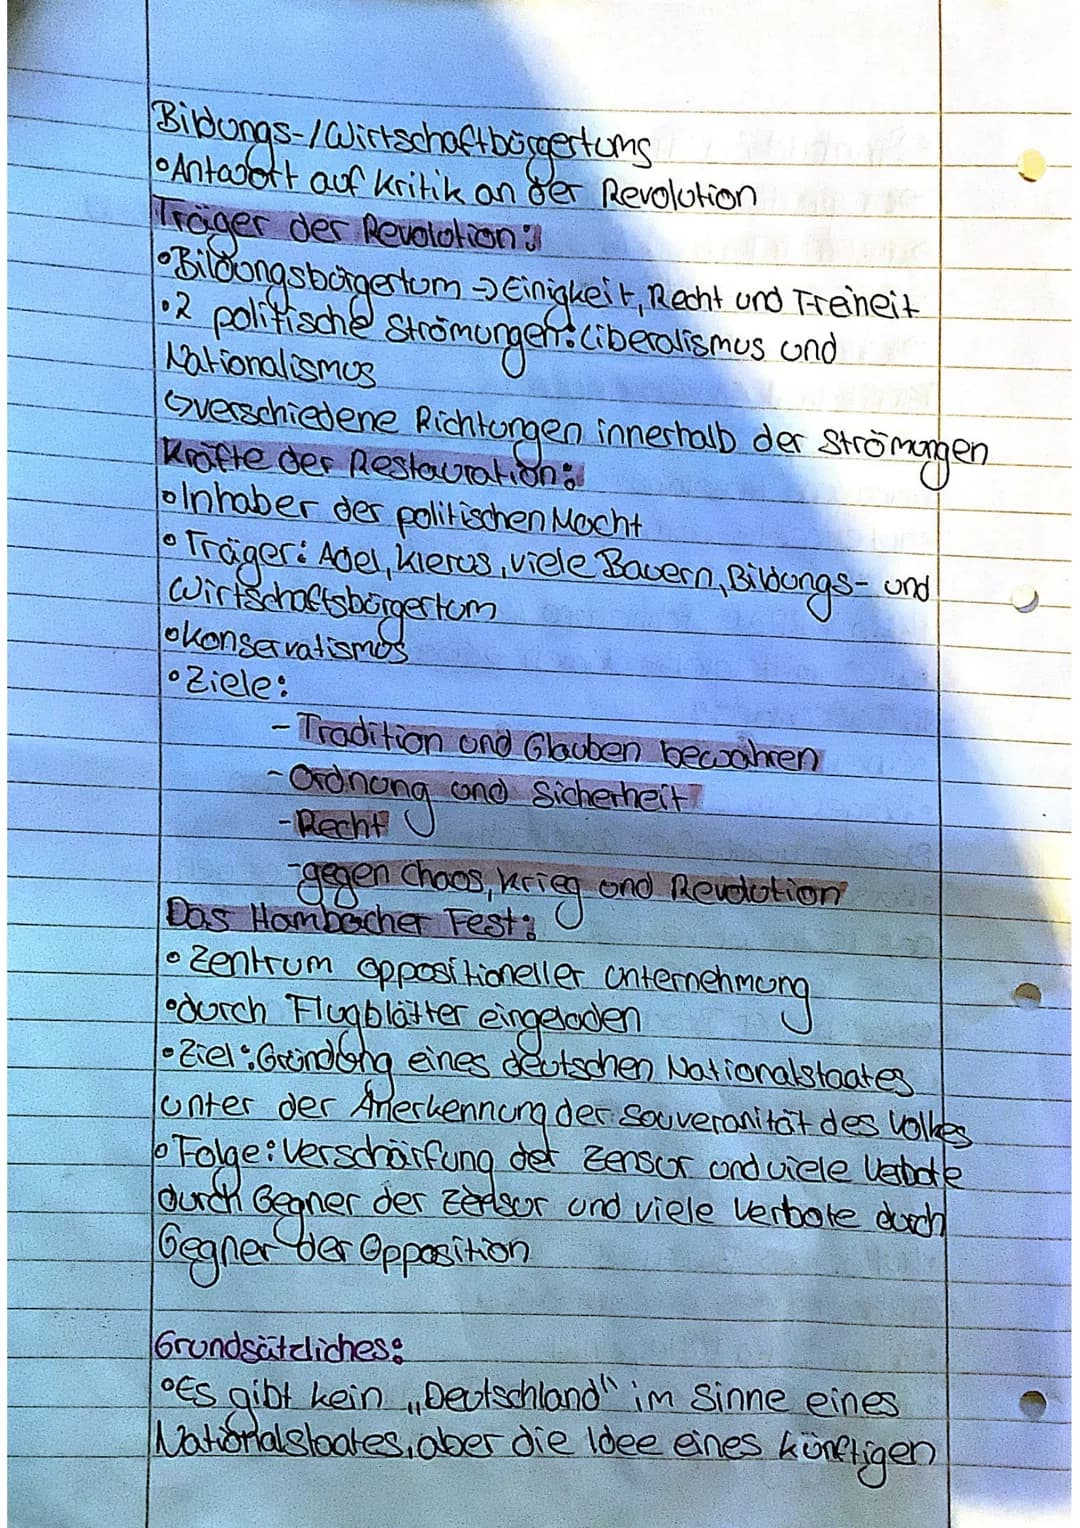 Bildungs-/Wirtschaftbürgertums
• Antwort auf Kritik an der Revolution
Träger der Revolution:
• Bildungsbürgertum → Einigkeit, Recht und Freiheit
• 2 politische Strömungen: Liberalismus und
Nationalismus
↳ verschiedene Richtungen innerhalb der Strömungen
Kräfte der Restauration:
• Inhaber der politischen Macht
• Träger: Adel, Klerus, viele Bauern, Bildungs- und
Wirtschaftsbürgertum
• Konservatismus
• Ziele:
- Tradition und Glauben bewahren
- Ordnung und Sicherheit
- Recht
- gegen Chaos, Krieg und Revolution
Das Hambacher Fest:
• Zentrum oppositioneller Unternehmung
• durch Flugblätter eingeladen
• Ziel: Gründung eines deutschen Nationalstaates
unter der Anerkennung der Souveränität des Volkes
• Folge: Verschärfung der Zensur und viele Verbote
durch Gegner der Zensur und viele Verbote durch
Gegner der Opposition
Grundsätzliches:
• Es gibt kein „Deutschland" im Sinne eines
Nationalstaates, aber die Idee eines künftigen